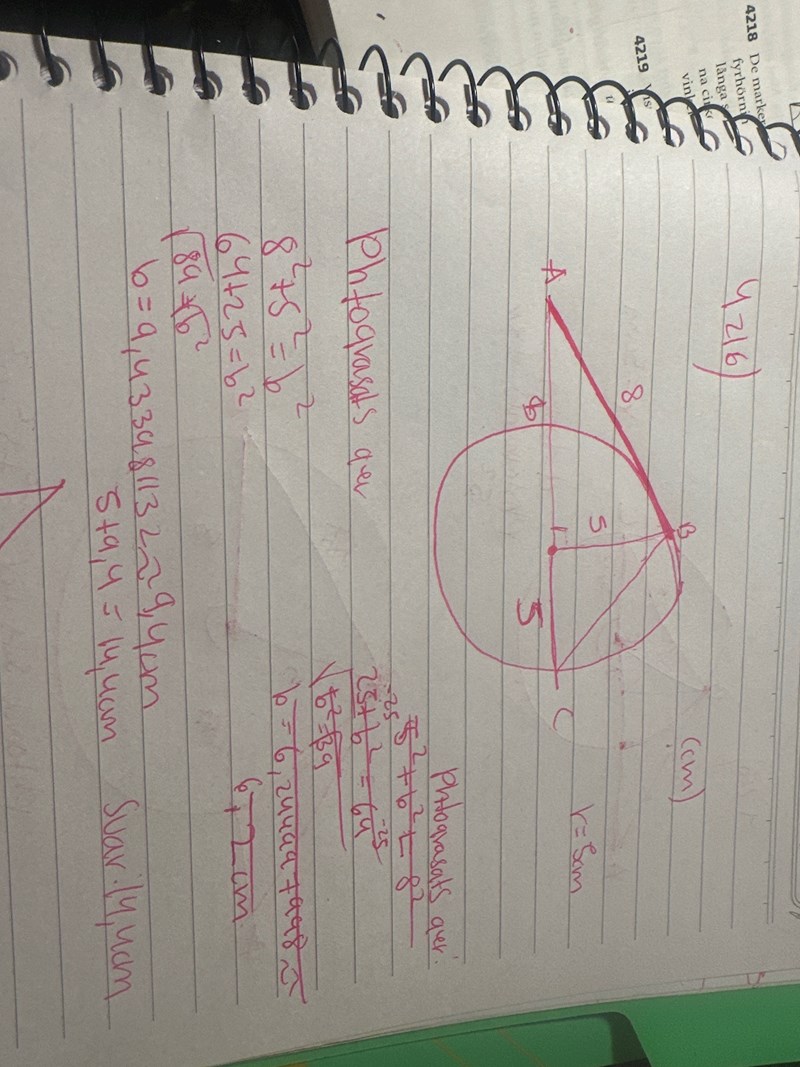 4218 De marker
fyrhörnin
långa s
na cir
vinl
4219 Vis
4216)
(cm)
r=5cm
A
8
B
5
5
C
Phtograsats ger
8²+5²=b²
64+25=b²
b=9,433981132≈9,4cm
5+9,4=14,4cm Svar:14,4cm
Phtograsats ger:
5²+b²=8²
-25 -25
25+b²=64
6,2cm